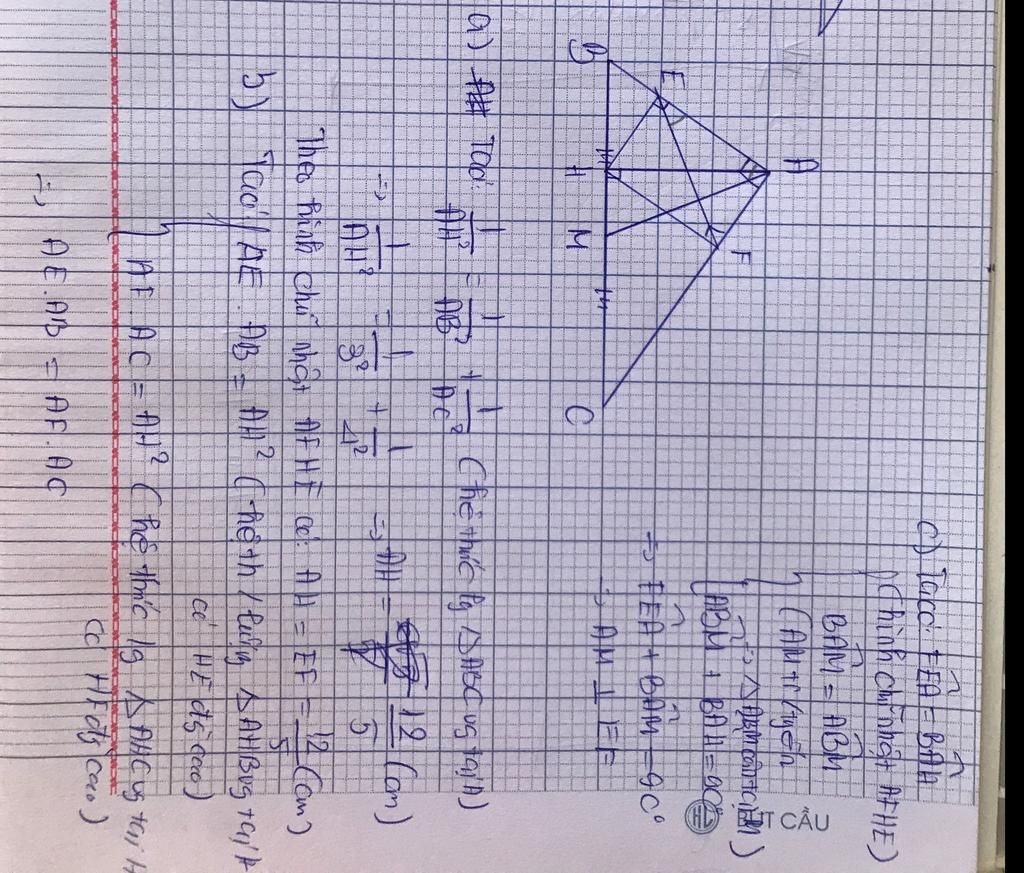 A
E
F
B
H
M
C
a) Ta có: 1/AH² = 1/AB² + 1/AC² (hệ thức lg △ABC vg tại A)
⇒ 1/AH² = 1/3² + 1/4² ⇒ AH = 12/5 (cm)
Theo hình chữ nhật AFHE có: AH = EF = 12/5 (cm)
b) Ta có: AE . AB = AH² (hệ th / lượng △AHB vg tại H
có HE đg cao)
AF . AC = AH² (hệ thức lg △AHC vg tại H
có HF đg cao)
⇒ AE.AB = AF.AC
c) Ta có: FEA = BAH
(hình chữ nhật AFHE)
BAM = ABM
(AM tr/tuyến
⇒ △ABM cân tại M)
ABM + BAH = 90°
⇒ FEA + BAM = 90°
⇒ AM ⊥ EF
BÚT CẦU